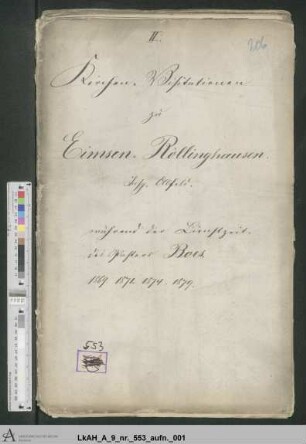 II.
206
Kirchen-Visitationen
zu
Eimsen-Röllinghausen.
Insp. Alfeld.
während der Dienstzeit
des Pastors Bock
1869 1872 1874 1879.
553
LkAH_A_9_nr._553_aufn._001